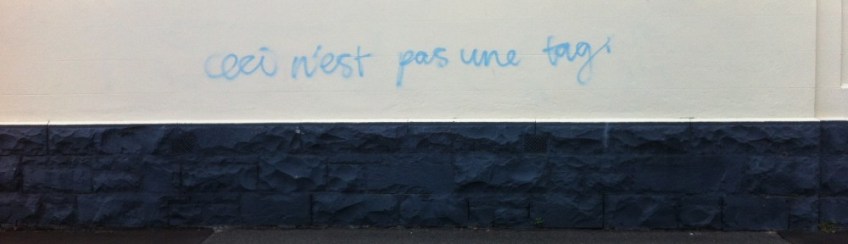 ceci n'est pas une tag.